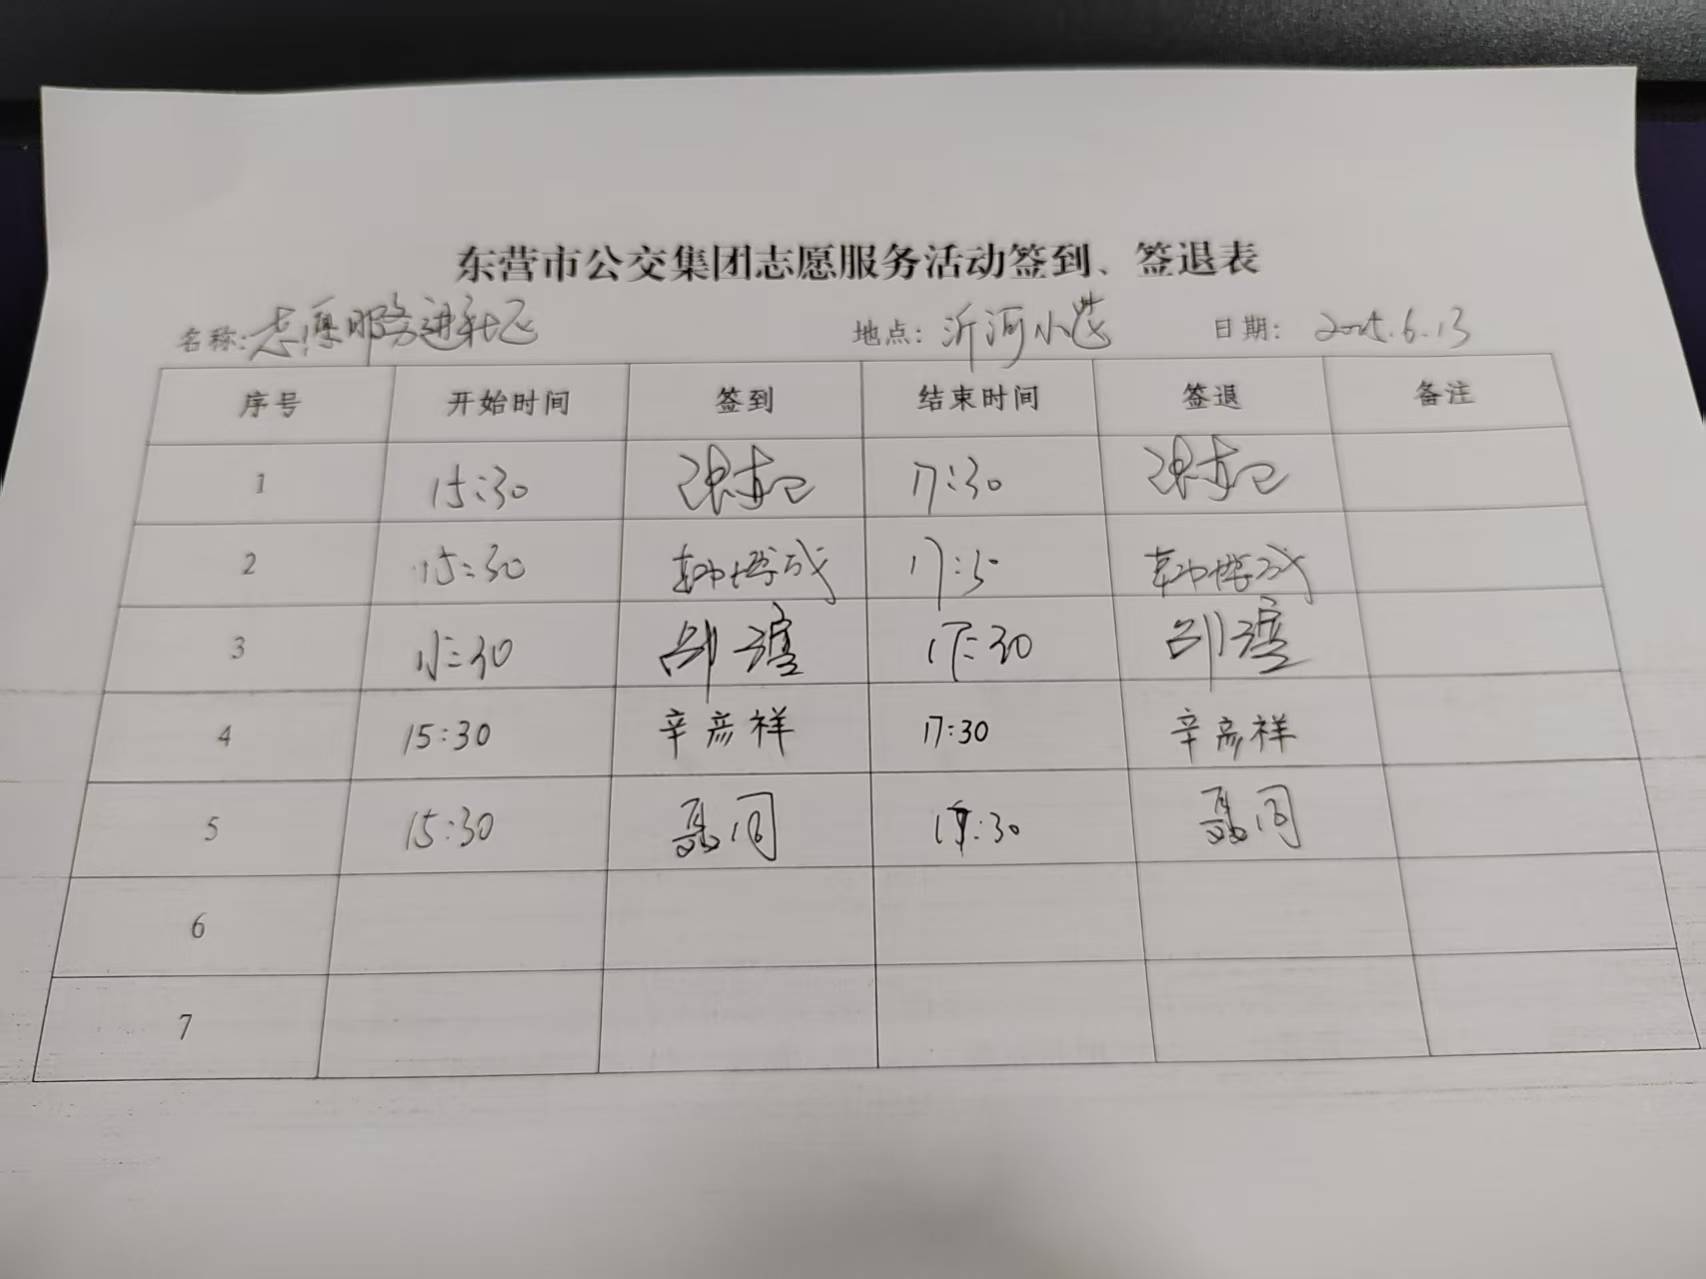 东营市公交集团志愿服务活动签到、签退表
名称: 志愿服务进社区 地点: 沂河小 日期: 2025.6.13
序号 开始时间 签到 结束时间 签退 备注
1 15:30 17:30
2 15:30 韩博成 17:30 韩博成
3 15:30 17:30
4 15:30 辛彦祥 17:30 辛彦祥
5 15:30 聂同 17:30 聂同
6
7